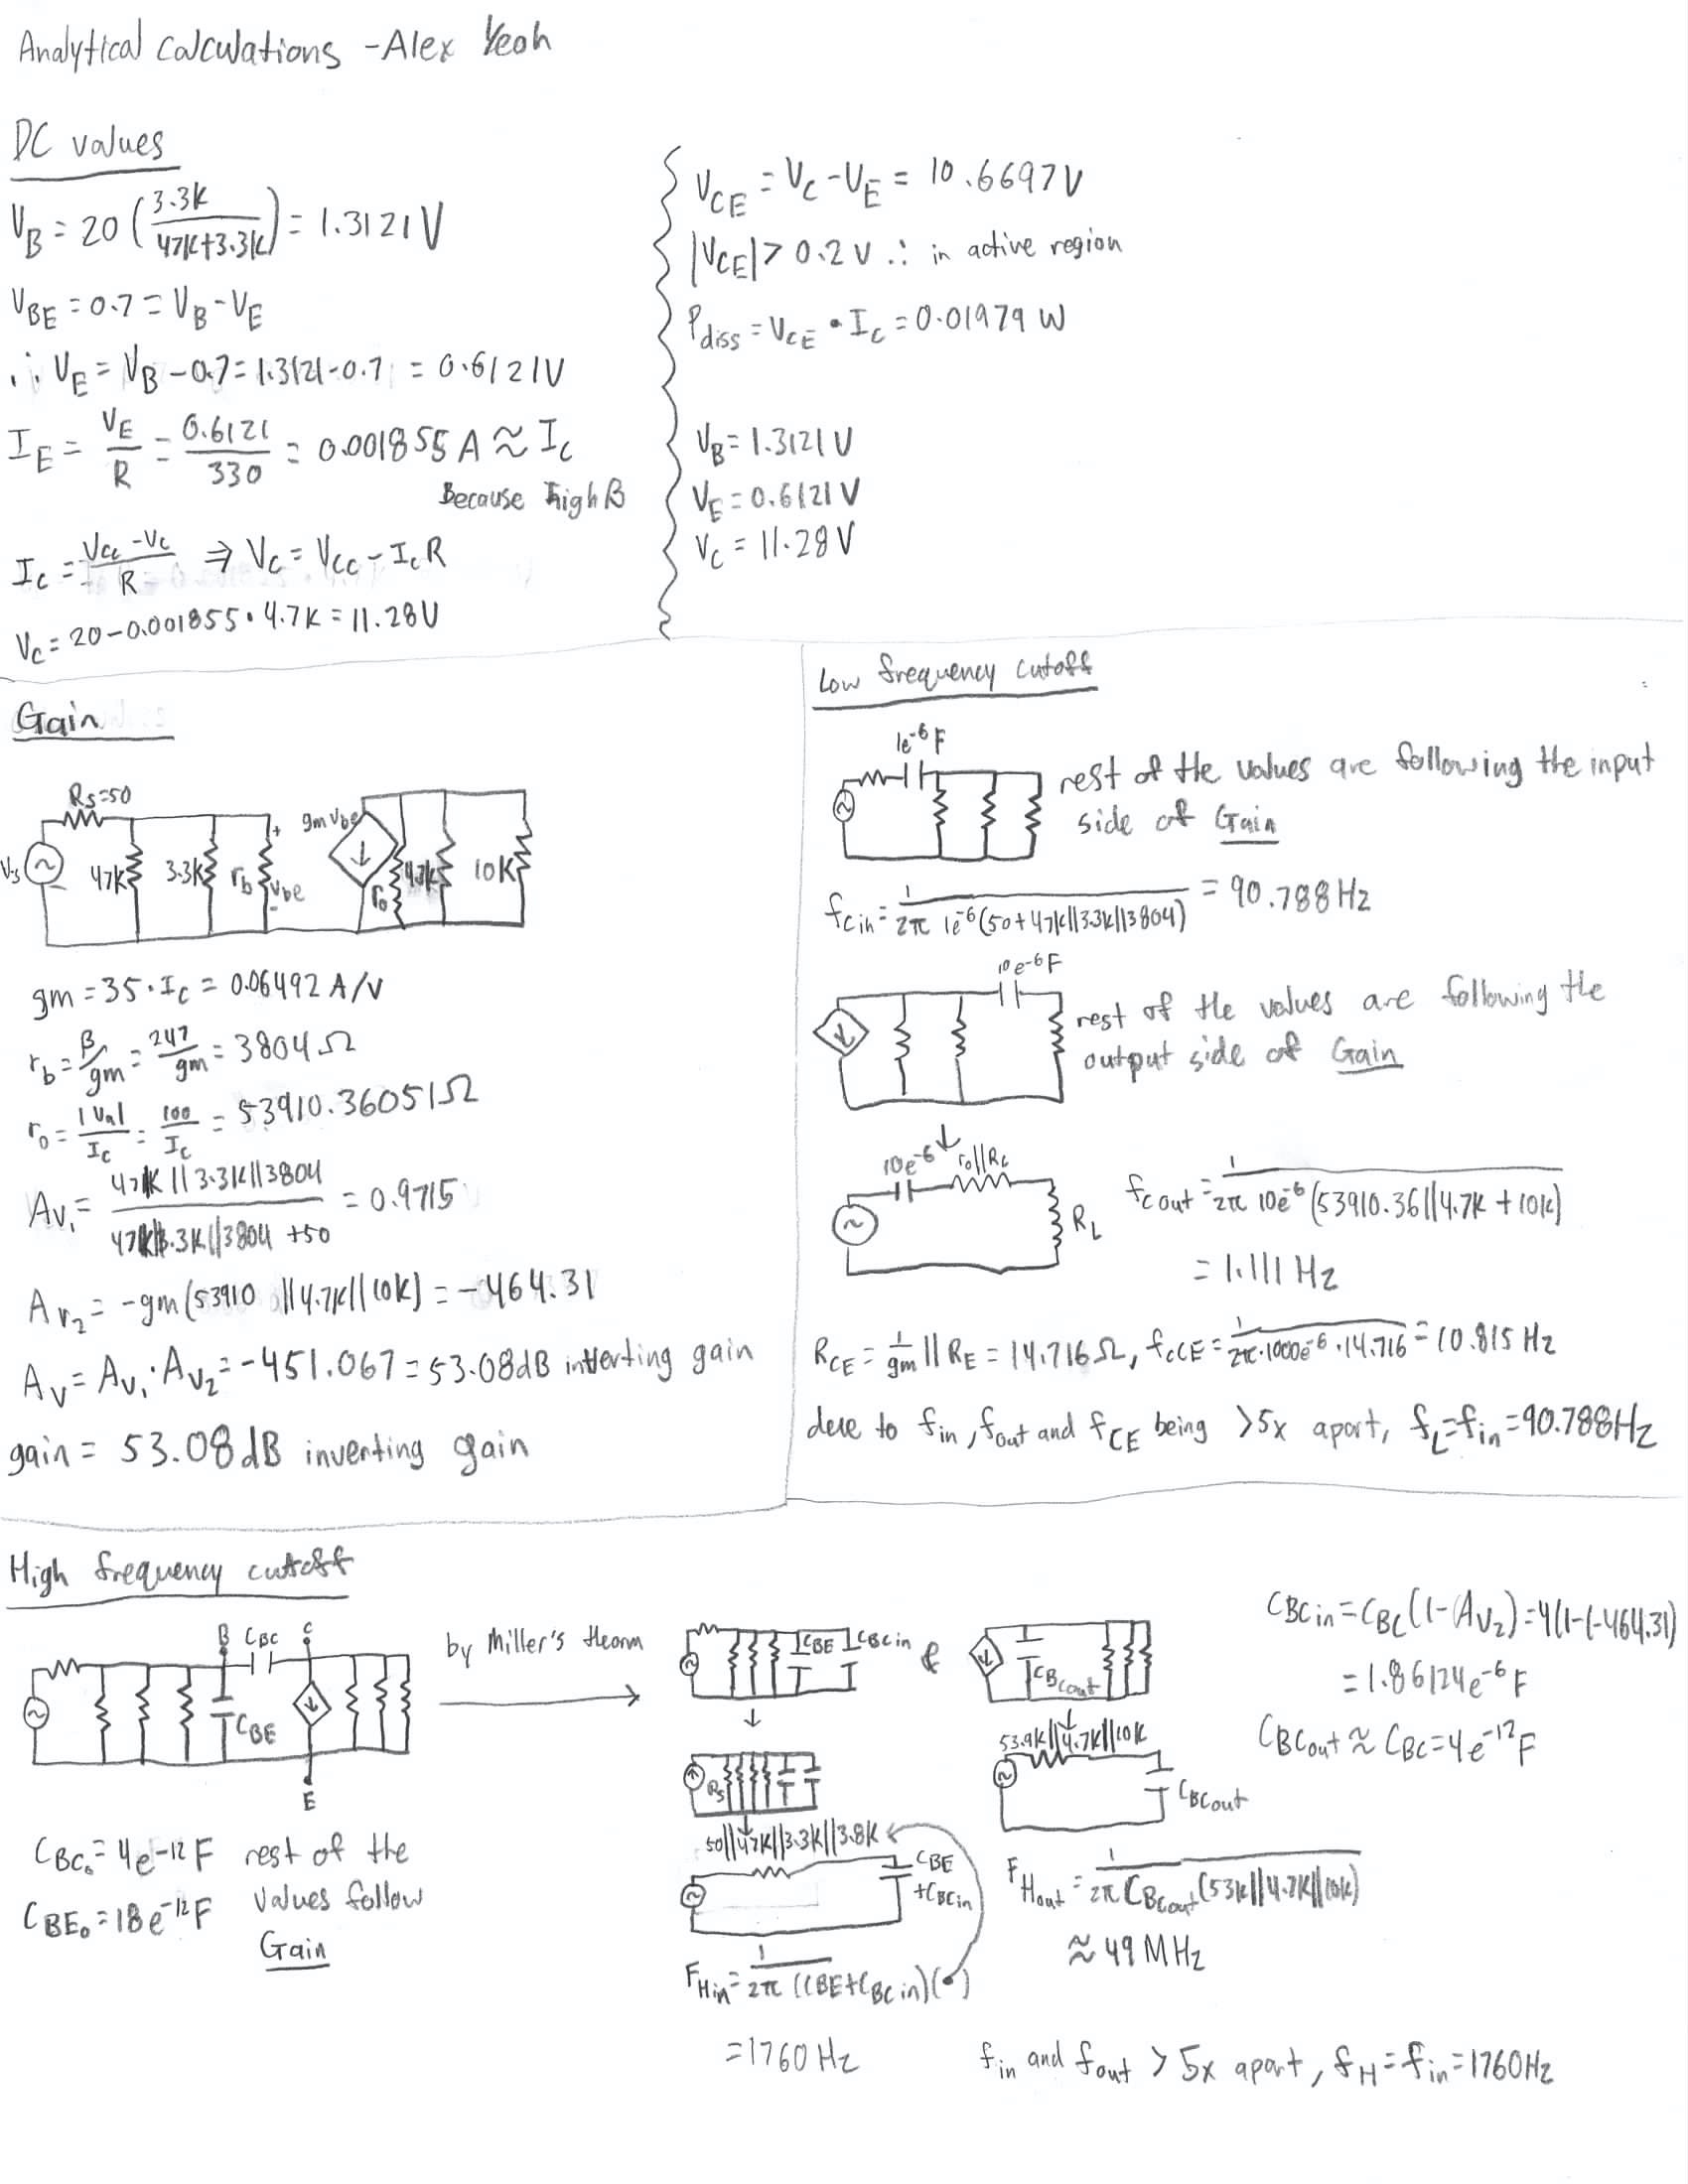 Analytical Calculations - Alex Yeoh
DC values
V_B = 20 (3.3K / 47K+3.3K) = 1.3121 V
V_BE = 0.7 = V_B - V_E
∴ V_E = V_B - 0.7 = 1.3121 - 0.7 = 0.6121V
I_E = V_E / R = 0.6121 / 330 = 0.001855 A ≈ I_C
Because high β
I_C = Vcc - Vc / R ⇒ V_C = V_CC - I_C R
V_C = 20 - 0.001855 • 4.7K = 11.28V
V_CE = V_C - V_E = 10.6697V
|V_CE| > 0.2 V ∴ in active region
P_diss = V_CE • I_C = 0.01979 W
V_B = 1.3121 V
V_E = 0.6121 V
V_C = 11.28 V
Gain
Rs=50
Vs
47K
3.3K
r_b
+
Vbe
-
gm Vbe
r_o
4.7k
10K
gm = 35 • I_C = 0.06492 A/V
r_b = β / gm = 247 / gm = 3804 Ω
r_o = |Va| / I_C = 100 / I_C = 53910.36051Ω
A_V1 = 47K || 3.3K || 3804 / 47K||3.3K||3804 + 50 = 0.9715
A_V2 = -gm (53910 || 4.7K || 10K) = -464.31
A_V = A_V1 • A_V2 = -451.067 = 53.08dB inverting gain
gain = 53.08dB inventing gain
Low frequency cutoff
1e^-6 F
rest of the values are following the input
side of Gain
f_cin = 1 / 2π 1e^-6 (50+47K||3.3K||3804) = 90.788 Hz
10e^-6 F
rest of the values are following the
output side of Gain
10e^-6
r_o||R_C
R_L
f_cout = 1 / 2π 10e^-6 (53910.36||4.7K + 10K)
= 1.111 Hz
R_CE = 1/gm || R_E = 14.716Ω, f_cCE = 1 / 2π•1000e^-6•14.716 = 10.815 Hz
due to f_in, f_out and f_CE being >5x apart, f_L = f_in = 90.788Hz
High frequency cutoff
B
C_BC
C
C_BE
E
by Miller's theorm
C_BE
C_BC in
&
C_BCout
C_BCin = C_BC (1-(A_V2) = 4(1-(-464.31)
= 1.86124e^-6 F
C_BCout ≈ C_BC = 4e^-12 F
Rs
53.9k||4.7K||10K
C_BCout
50||47K||3.3K||3.8K
C_BE
+C_BCin
C_BC0 = 4e^-12 F rest of the
C_BE0 = 18e^-12 F values follow
Gain
F_Hin = 1 / 2π ((C_BE + C_BC in)(•)
= 1760 Hz
F_Hout = 1 / 2π C_BCout (53k||4.7K||10k)
≈ 49 MHz
f_in and f_out > 5x apart, f_H = f_in = 1760Hz